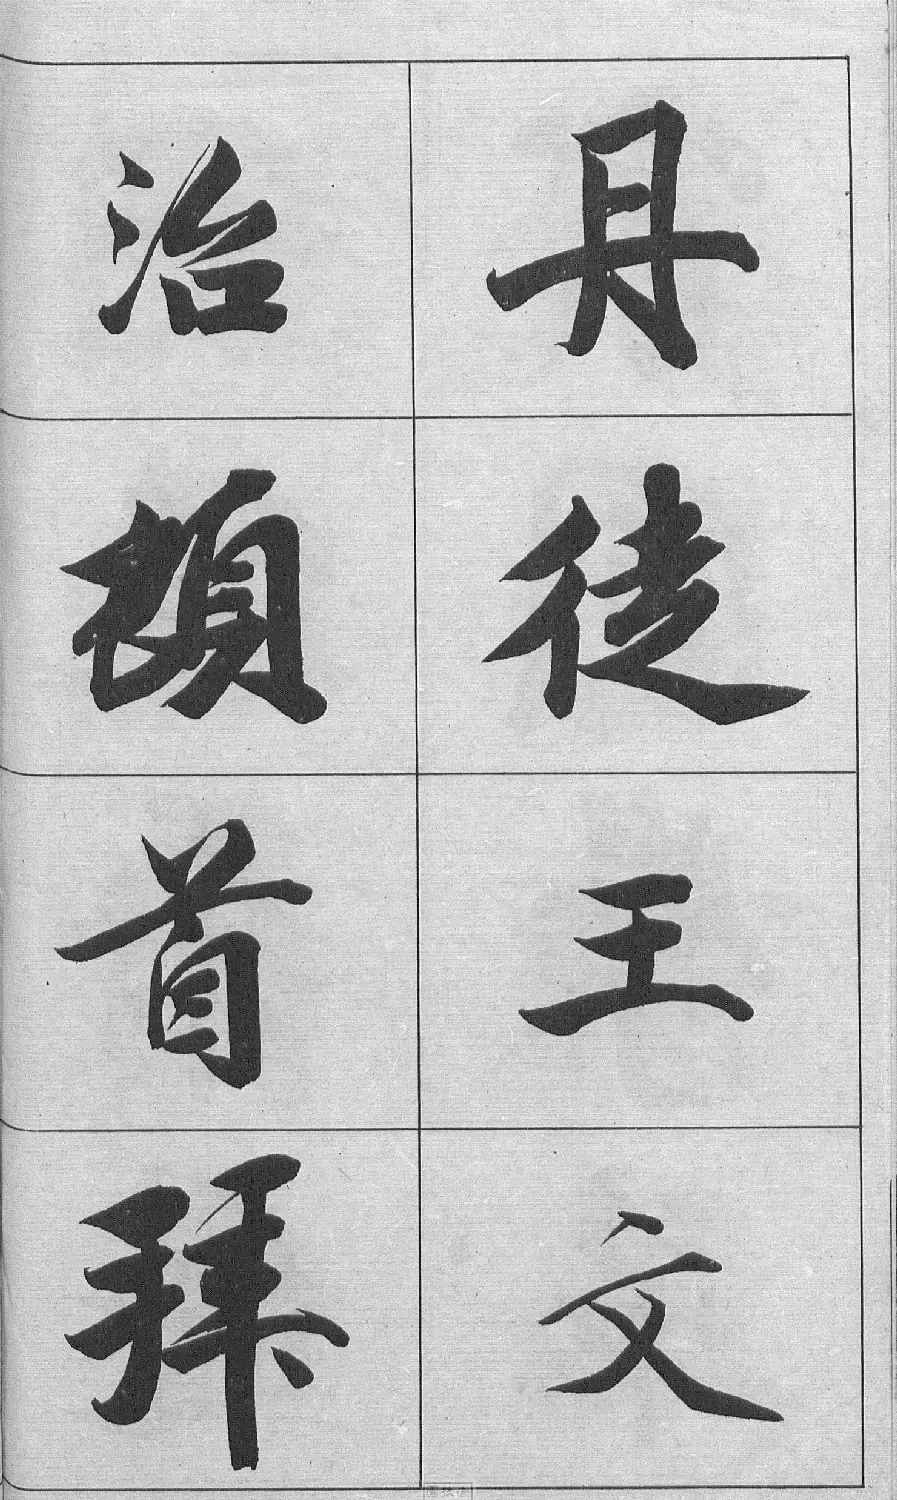 丹徒王文
治頓首拜